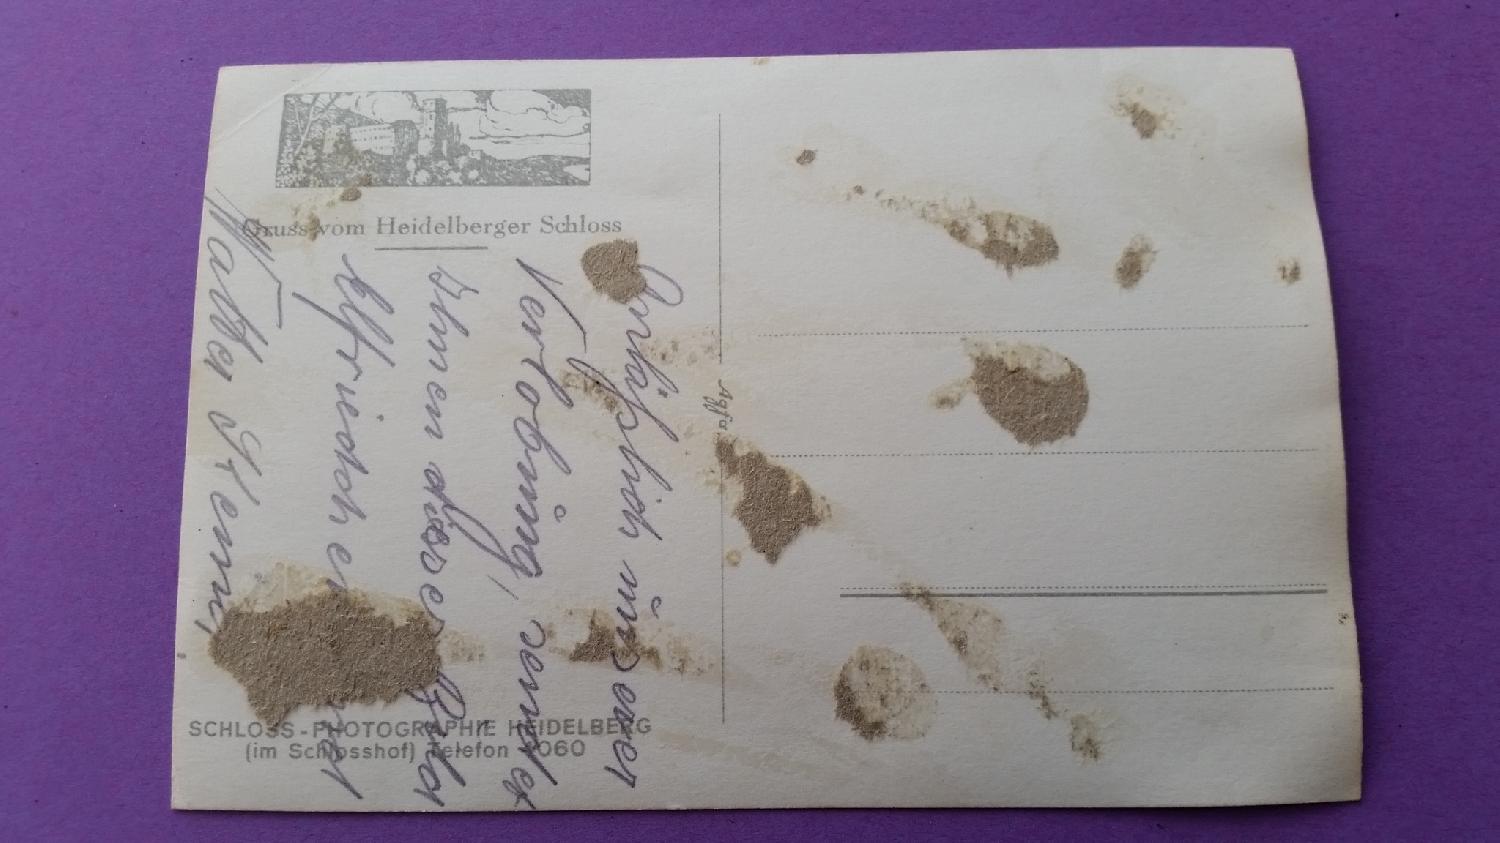 Gruss vom Heidelberger Schloss
Anläßlich unserer
Verlobung, sendet
Ihnen dieses Bild
Elfriedchen
Walter
Agfa
SCHLOSS-PHOTOGRAPHIE HEIDELBERG
(im Schlosshof) Telefon 060